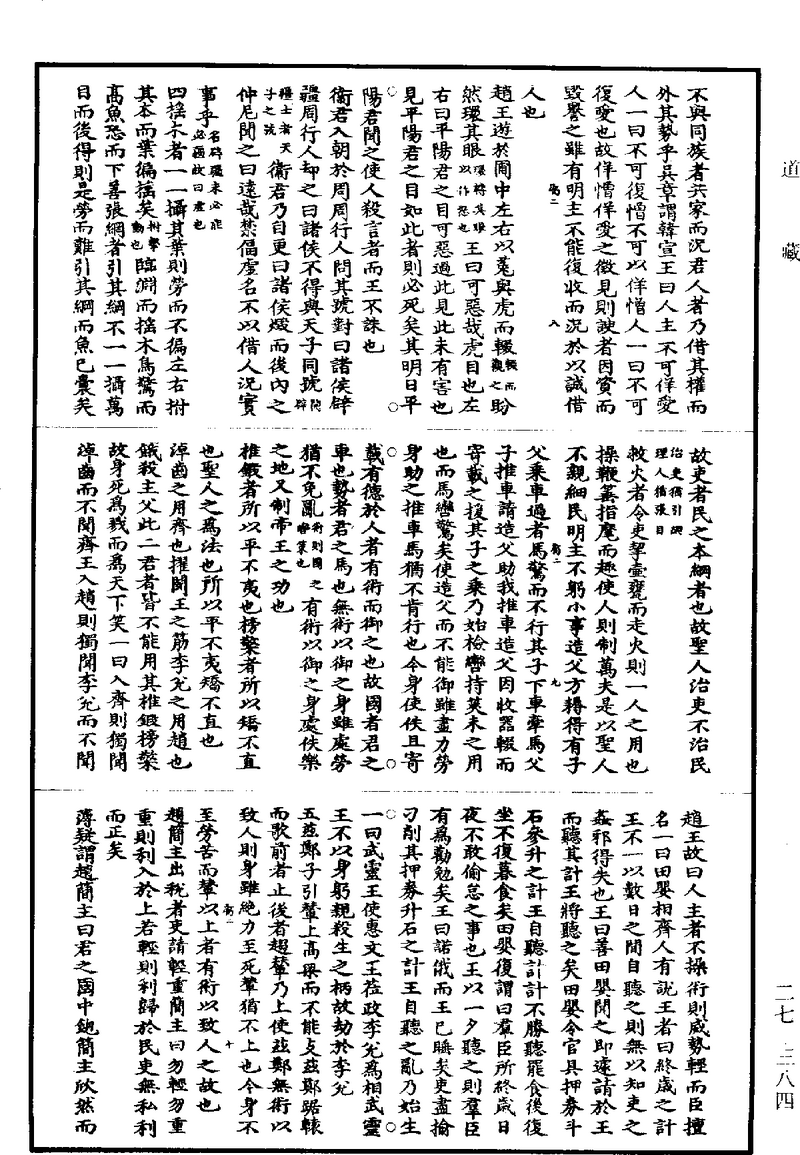 道藏
不與同族者共家而況君人者乃借其權而
外其勢乎吳章謂韓宣王曰人主不可佯愛
人一曰不可復憎不可以佯憎人一曰不可
復愛也故佯憎佯愛之徵見則諛者因資而
毀譽之雖有明主不能復收而況於以誠借
人也
趙王遊於囿中左右以菟與虎而輟輟而觀之盼
然環其眼環轉其眼以作怒也王曰可惡哉虎目也左
右曰平陽君之目可惡過此見此未有害也
見平陽君之目如此者則必死矣其明日平
陽君聞之使人殺言者而王不誅也
衛君入朝於周周行人問其號對曰諸侯辟
疆周行人却之曰諸侯不得與天子同號
衛君乃自更曰諸侯燬而後內之
仲尼聞之曰遠哉禁偪虛名不以借人況實
事乎名辟疆未必能必疆故曰虛也
四搖木者一一攝其葉則勞而不徧左右拊
其本而葉徧搖矣拊擊動也臨淵而搖木鳥驚而
高魚恐而下善張網者引其綱不一一攝萬
目而後得則是勞而難引其綱而魚已囊矣
故吏者民之本綱者也故聖人治吏不治民
治吏猶引綱理人猶張目
救火者令吏挈壺甕而走火則一人之用也
操鞭箠指麾而趣使人則制萬夫是以聖人
不親細民明主不躬小事造父方耨得有子
父乘車過者馬驚而不行其子下車牽馬父
子推車請造父助我推車造父因收器輟而
寄載之援其子之乘乃始檢轡持筴未之用
也而馬轡驚矣使造父而不能御雖盡力勞
身助之推車馬猶不肯行也今身使佚且寄
載有德於人者有術而御之也故國者君之
車也勢者君之馬也無術以御之身雖處勞
猶不免亂有術以御之身處佚樂
之地又制帝王之功也
椎鍛者所以平不夷也榜檠者所以矯不直
也聖人之為法也所以平不夷矯不直也
淖齒之用齊也擢閔王之筋李兌之用趙也
餓殺主父此二君者皆不能用其椎鍛榜檠
故身死為戮而為天下笑一曰入齊則獨聞
淖齒而不聞齊王入趙則獨聞李兌而不聞
趙王故曰人主者不操術則威勢輕而臣擅
名一曰田嬰相齊人有說王者曰終歲之計
王不一以數日之間自聽之則無以知吏之
姦邪得失也王曰善田嬰聞之即遽請於王
而聽其計王將聽之矣田嬰令官具押券斗
石參升之計王自聽計計不勝聽罷食後復
坐不復暮食矣田嬰復謂曰羣臣所終歲日
夜不敢偷怠之事也王以一夕聽之則羣臣
有為勸勉矣王曰諾俄而王已睡矣吏盡揄
刁削其押券升石之計王自聽之亂乃始生
一曰武靈王使惠文王莅政李兌為相武靈
王不以身躬親殺生之柄故劫於李兌
五茲鄭子引輦上高梁而不能攴茲鄭踞轅
而歌前者止後者趨輦乃上使茲鄭無術以
致人則身雖絕力至死輦猶不上也今身不
至勞苦而輦以上者有術以致人之故也
趙簡主出稅者吏請輕重簡主曰勿輕勿重
重則利入於上若輕則利歸於民吏無私利
而正矣
薄疑謂趙簡主曰君之國中飽簡主欣然而
二七 三八四